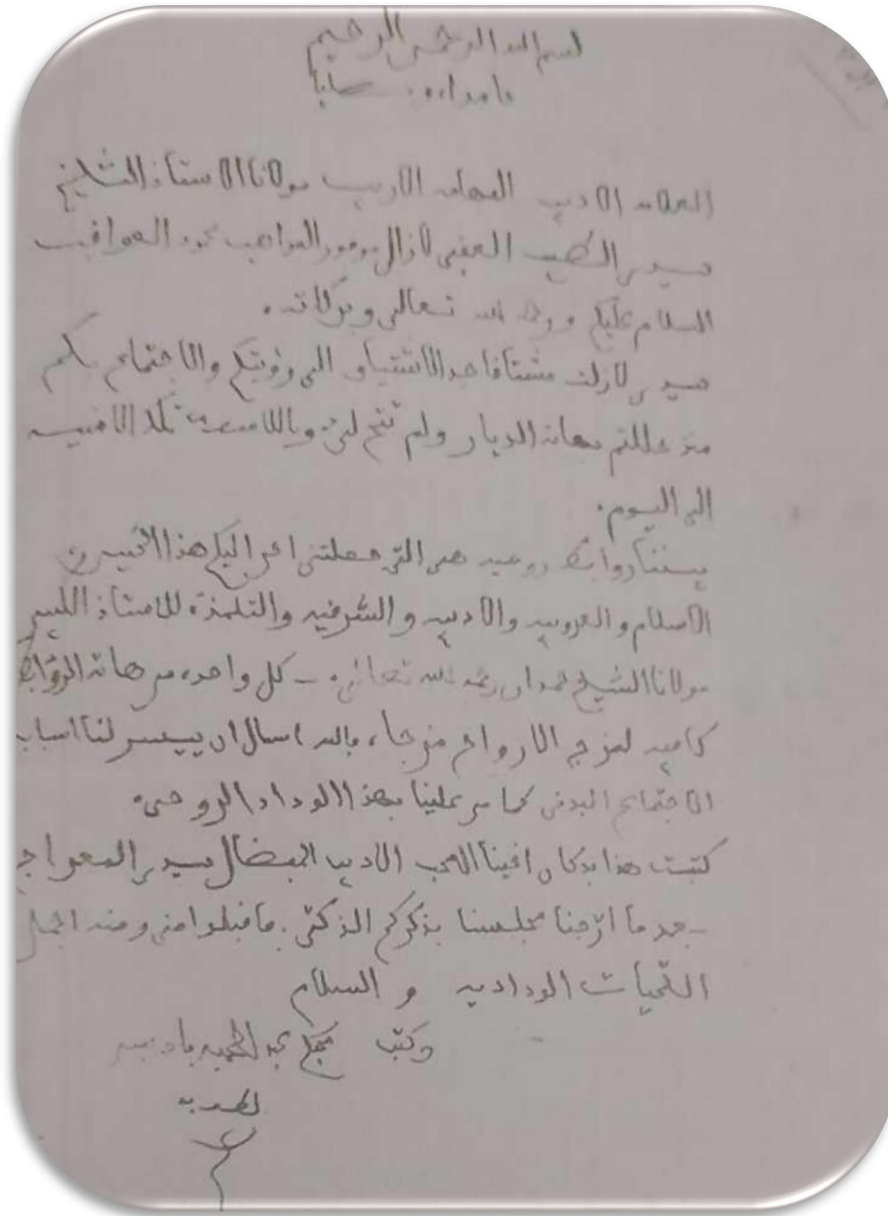 بسم الله الرحمن الرحيم
حامدا لله. مصليا
العلامة الاديب الفهامة الاريب مولانا الاستاذ الشيخ
سيدي الطيب العقبي لازال موفور المواهب محمود العواقب
السلام عليكم ورحمة الله تعالى وبركاته.
سيدي لازلت مشتاقا جد الاشتياق الى رؤيتكم والاجتماع بكم
منذ حللتم بهاته الديار ولم تتح لي وياللاسف تلك الامنية
الى اليوم.
بيننا روابط روحية هي التي جعلتني
الاسلام والعروبية والادبية والشرقية والتلمذة للاستاذ الكبير
مولانا الشيخ حمدان رحمه الله تعالى. - كل واحدة من هاته الروابط
كافية لمزج الارواح مزجا، فالله اسال ان ييسر لنا اسباب
الاجتماع البدني كما من علينا بهذا الوداد الروحي.
كتبت هذا بدكان اخينا المحب الاديب المفضال سيدي
بعد ما ارجنا مجلسنا بذكركم الذكي. فاقبلوا مني ومنه اجمل
التحيات الودادية و السلام
وكتب محبكم عبد الحميد بن باديس
لطف به